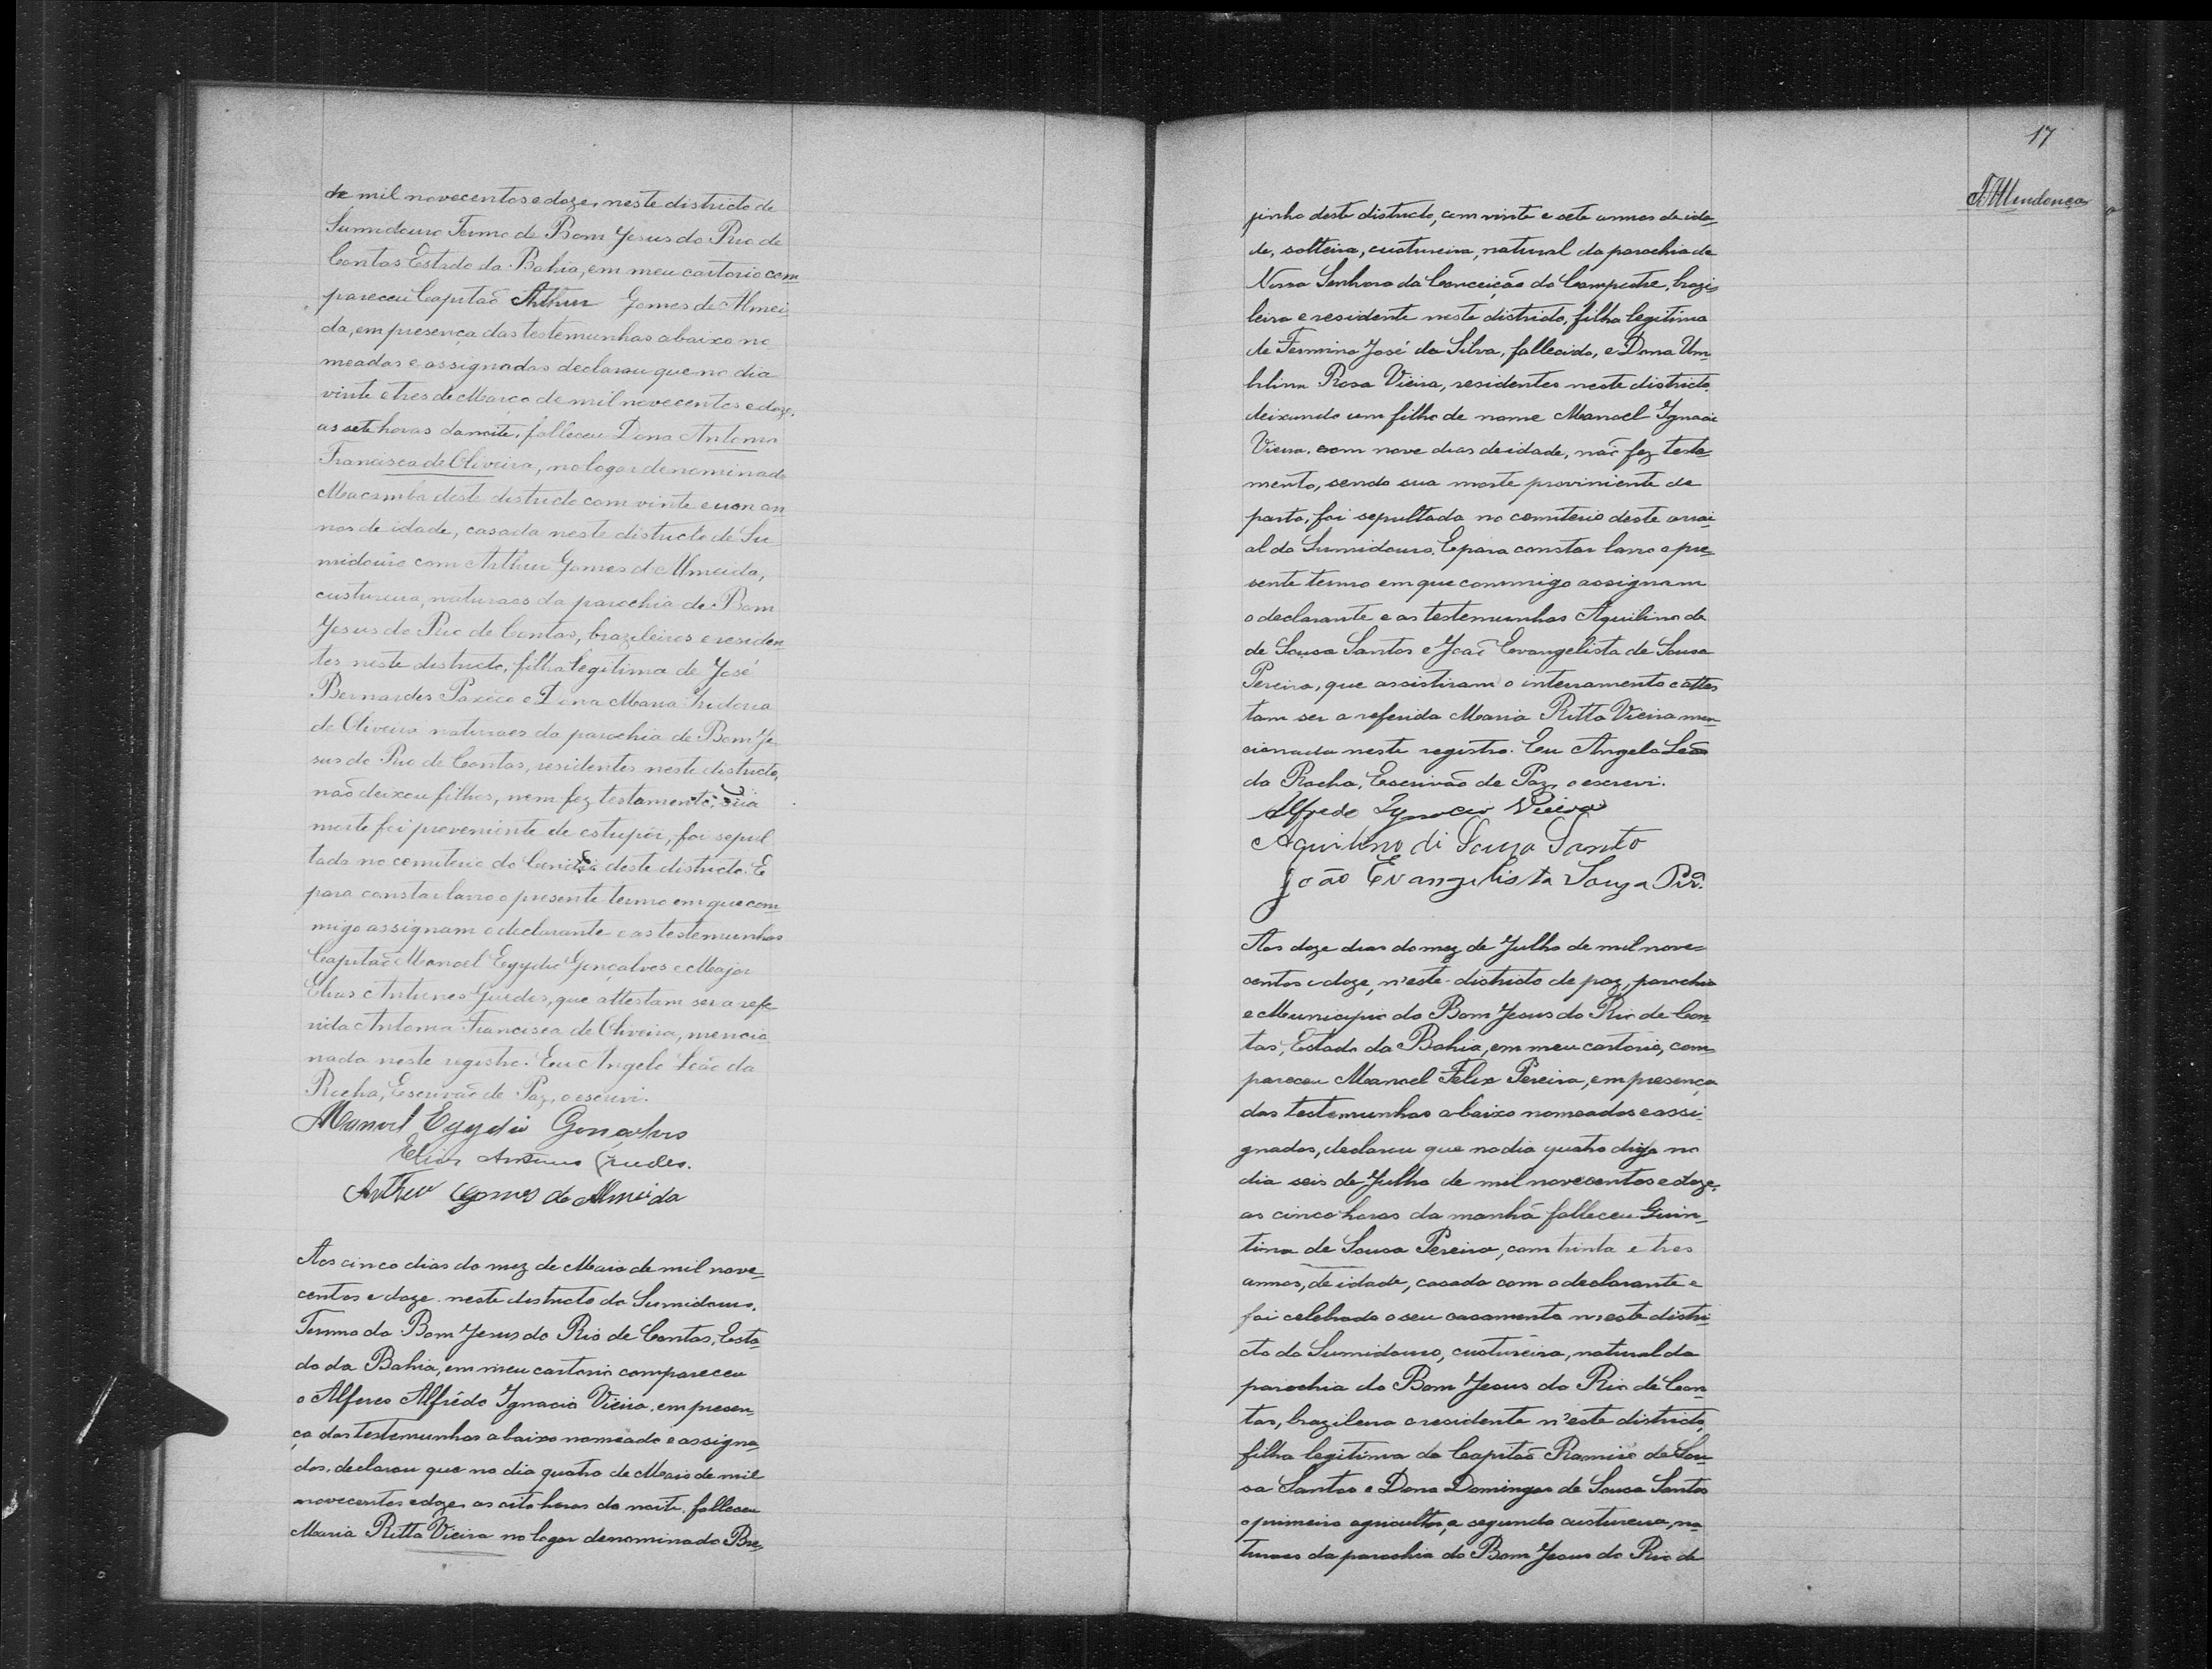 de mil novecentos e doze, neste districto de
Sumidouro Termo de Bom Jesus do Rio de
Contas Estado da Bahia, em meu cartorio com
pareceu Capitaõ Arthur Gomes de Almei
da, em presença das testemunhas abaixo no
meadas e assignadas declarou que no dia
vinte e tres de Março de mil novecentos e doze,
as sete horas da noite, falleceu Dona Antonia
Francisca de Oliveira, no logar denominado
Macamba deste districto com vinte e um an
nos de idade, casada neste districto de Su
midouro com Arthur Gomes de Almeida,
custureira, naturaes da parochia de Bom
Jesus do Rio de Contas, brazileiros e residen
tes neste districto, filha legitima de José
Bernardes Paxêco e Dona Maria Izidoria
de Oliveira naturaes da parochia de Bom Je
sus do Rio de Contas, residentes neste districto,
naõ deixou filhos, nem fez testamento, sua
morte foi proveniente de estupôr, foi sepul
tada no cemiterio do deste districto. E
para constar lavro o presente termo em que com
migo assignam o declarante e as testemunhas
Capitaõ Manoel Egydio Gonçalves e Major
Elias Antunes Guedes, que attestam ser a refe
rida Antonia Francisca de Oliveira, mencio
nada neste registro. Eu Angelo Leão da
Rocha, Escrivaõ de Paz, o escrevi.
Manoel Egydio Gonçalves
Elias Antunes Guedes.
Arthur Gomes de Almeida
Aos cinco dias do mez de Maio de mil nove-
centos e doze, neste districto do Sumidouro,
Termo do Bom Jesus do Rio de Contas, Esta
do da Bahia, em meu cartorio compareceu
o Alferes Alfrêdo Ignacio Vieira, em presen-
ça das testemunhas abaixo nomeado e assigna
dos, declarou que no dia quatro de Maio de mil
novecentos e doze, as oito horas da noite, falleceu
Maria Ritta Vieira no logar denominado Bre-
17
pinho deste districto, com vinte e sete annos de ida-
de, solteira, custureira, natural da parochia de
Nossa Senhora da Conceição do Campestre, brazi-
leira e residente neste districto, filha legitima
de Fermino José da Silva, fallecido, e Dona Um-
bilina Rosa Vieira, residentes neste districto
deixando um filho de nome Manoel Ignacio
Vieira, com nove dias de idade, naõ fez testa-
mento, sendo sua morte proviniente de
parto, foi sepultada no cemiterio deste arrai-
al do Sumidouro. E para constar lavro o pre-
sente termo em que commigo assignam
o declarante e as testemunhas Aquilino de
de Sousa Santos e Joaõ Evangelista de Sousa
Pereira, que assistiram o interramento e attes
tam ser a referida Maria Ritta Vieira men-
cionada neste registro. Eu Angelo Leão
da Rocha, Escrivão de Paz, o escrevi.
Alfredo Ignacio Vieira
Aquilino di Souza Santo
João Evangelista Souza Pra.
Aos doze dias do mez de Julho de mil nove-
centos e doze, n'este districto de paz, parochia
e Municipio do Bom Jesus do Rio de Con-
tas, Estado da Bahia, em meu cartorio, com-
pareceu Manoel Felix Pereira, em presença
das testemunhas abaixo nomeadas e assi-
gnadas, declarou que no dia quatro digo no
dia seis de Julho de mil novecentos e doze,
as cinco horas da manhã falleceu Guin-
tina de Sousa Pereira, com trinta e tres
annos, de idade, casada com o declarante e
foi celebrado o seu casamento n'este distri-
cto do Sumidouro, custureira, natural da
parochia do Bom Jesus do Rio de Con-
tas, brazileira e residente n'este districto,
filha legitima do Capitaõ Ramiro de Sou-
sa Santos e Dona Domingas de Sousa Santos
o primeiro agricultor, e segunda custureira, na-
turaes da parochia do Bom Jesus do Rio de